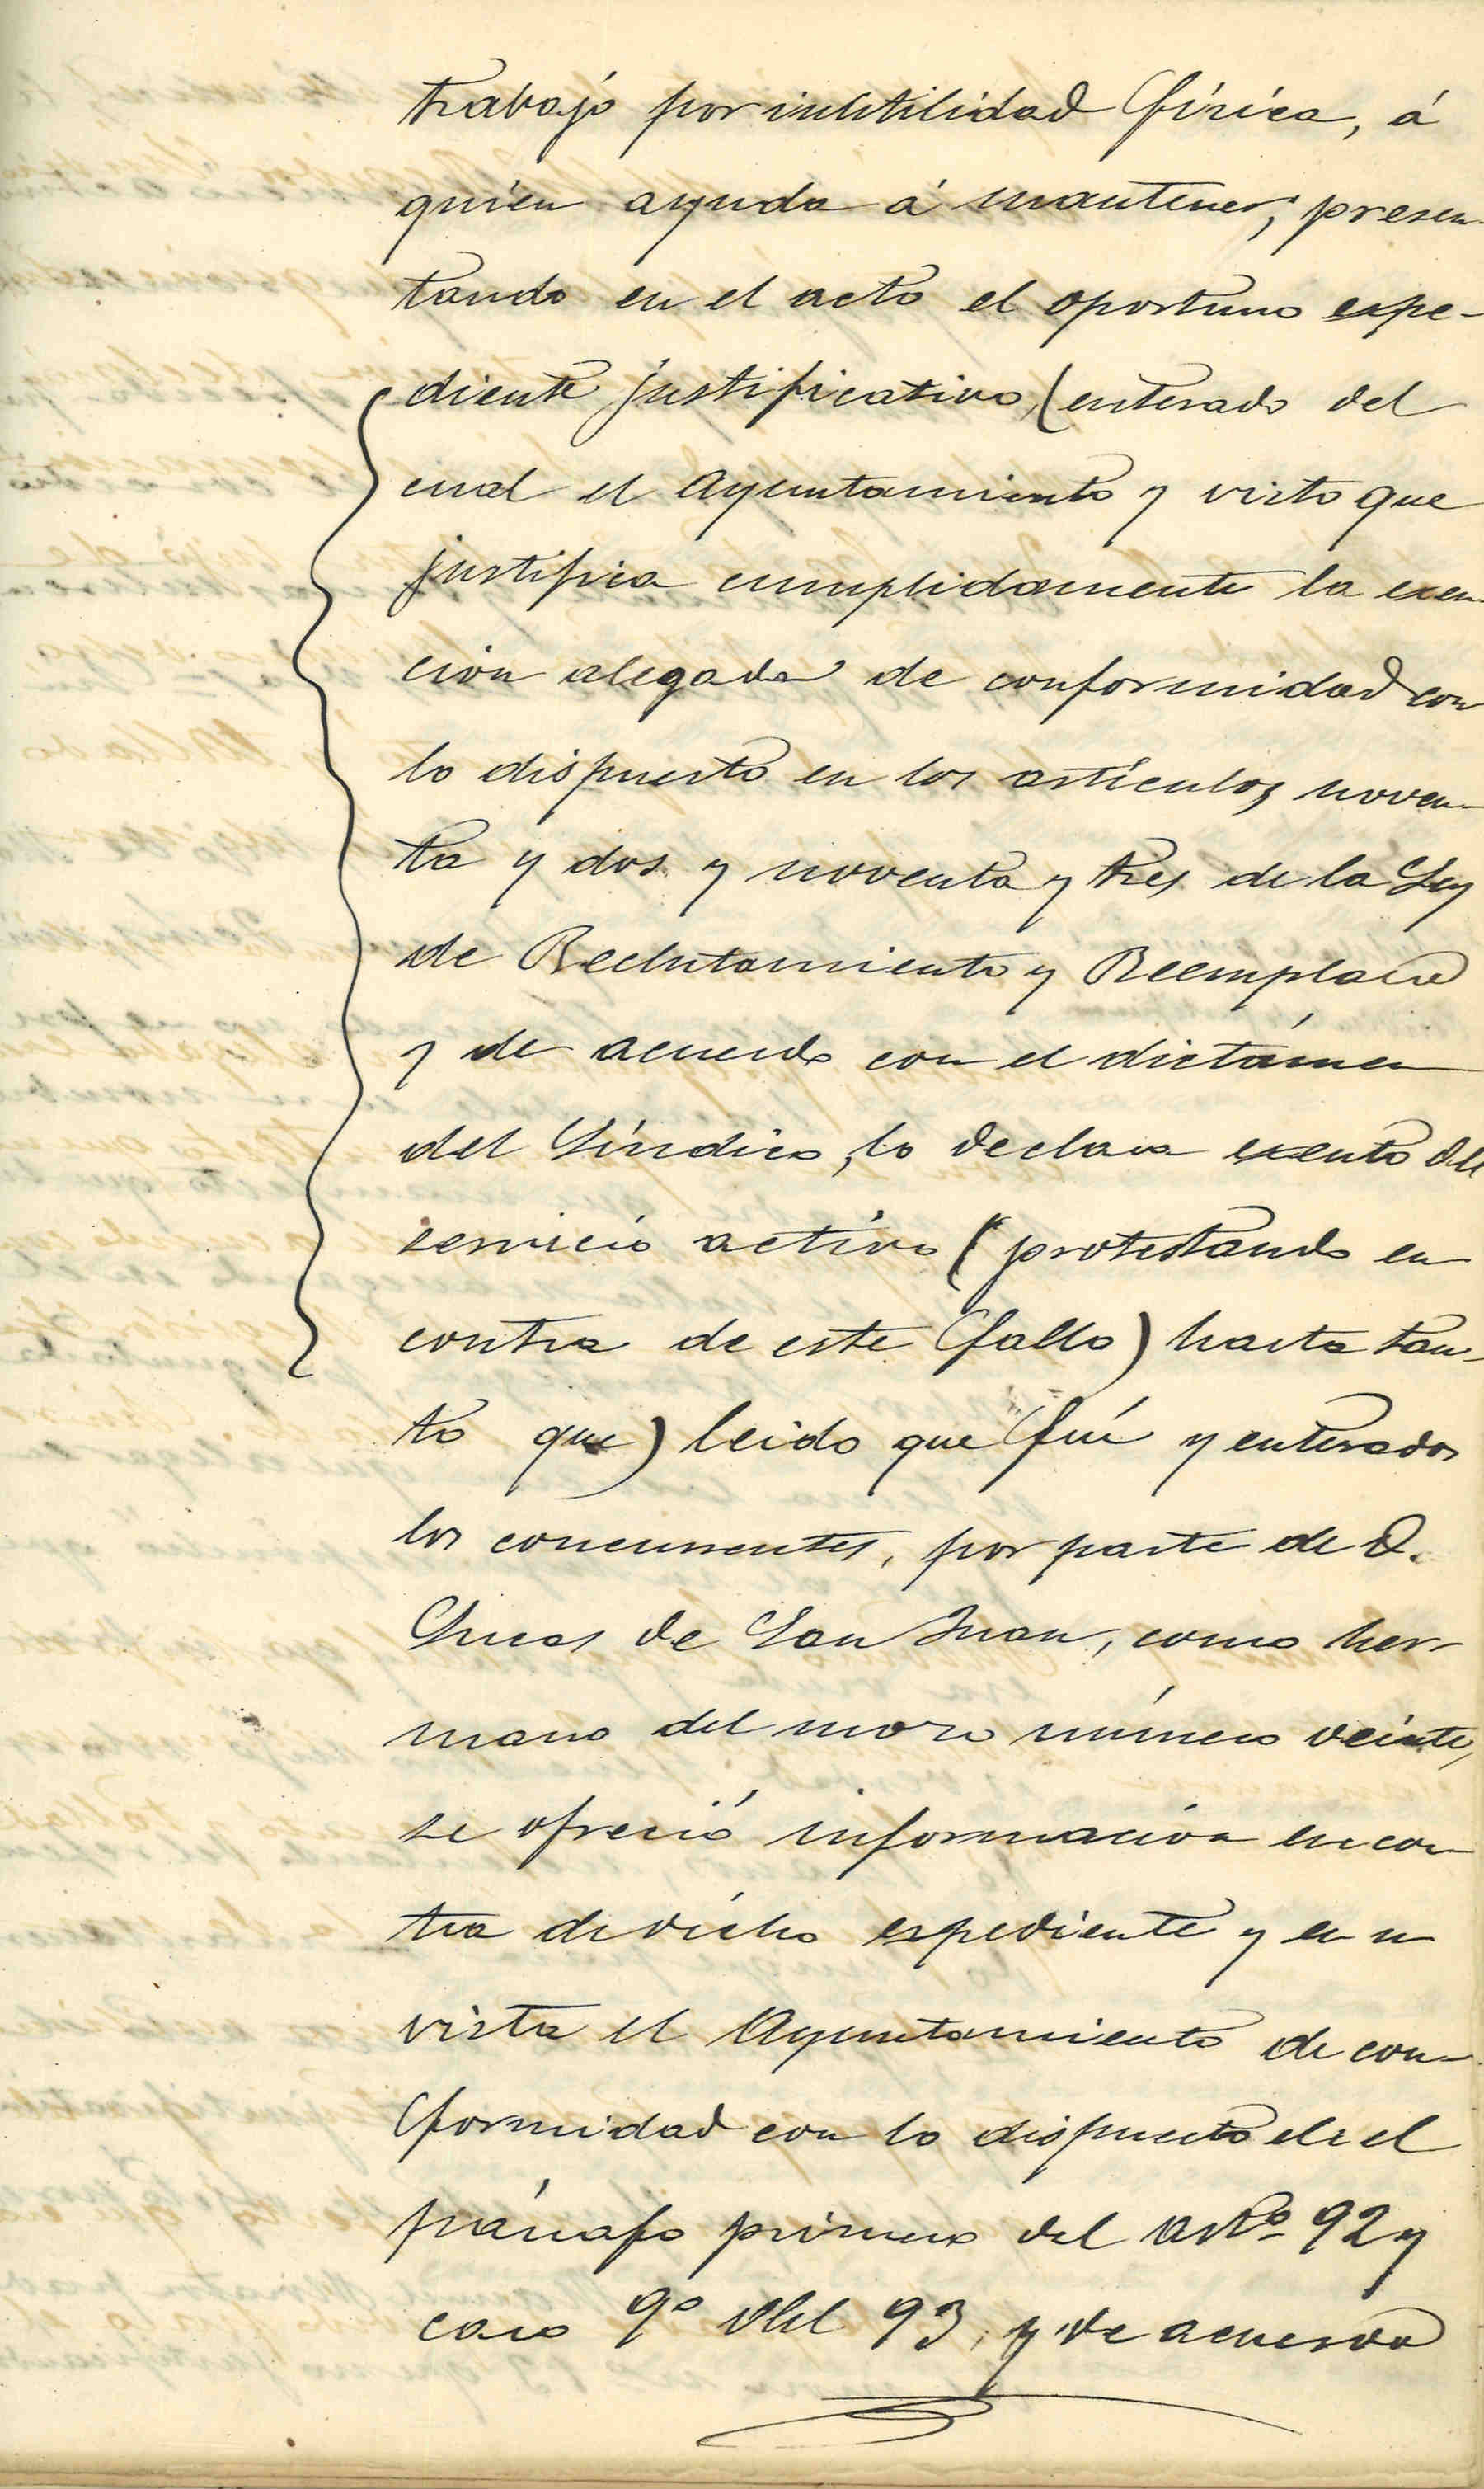 trabajo por inhutilidad física, á
quién ayuda á mantener, presen-
tando en el acto el oportuno espe-
diente justificativo, (enterado del
cual el Ayuntamiento y visto que
justifica cumplidamente la exen-
ción alegada de conformidad con
lo dispuesto en los artículos noven-
ta y dos y noventa y tres de la Ley
de Reclutamiento y Reemplazo
y de acuerdo con el dictámen
del Síndico, lo declara exento del
servicio activo (protestando en
contra de este fallo) hasta tan-
to que) leido que fué y enterados
los concurrentes, por parte de D.
Lucas de San Juan, como her-
mano del mozo número veinte,
se ofreció información en con
tra de dicho espediente y en su
vista el Ayuntamiento de con-
formidad con lo dispuesto en el
párrafo primero del artº 92 y
caso 9º del 93, y de acuerdo